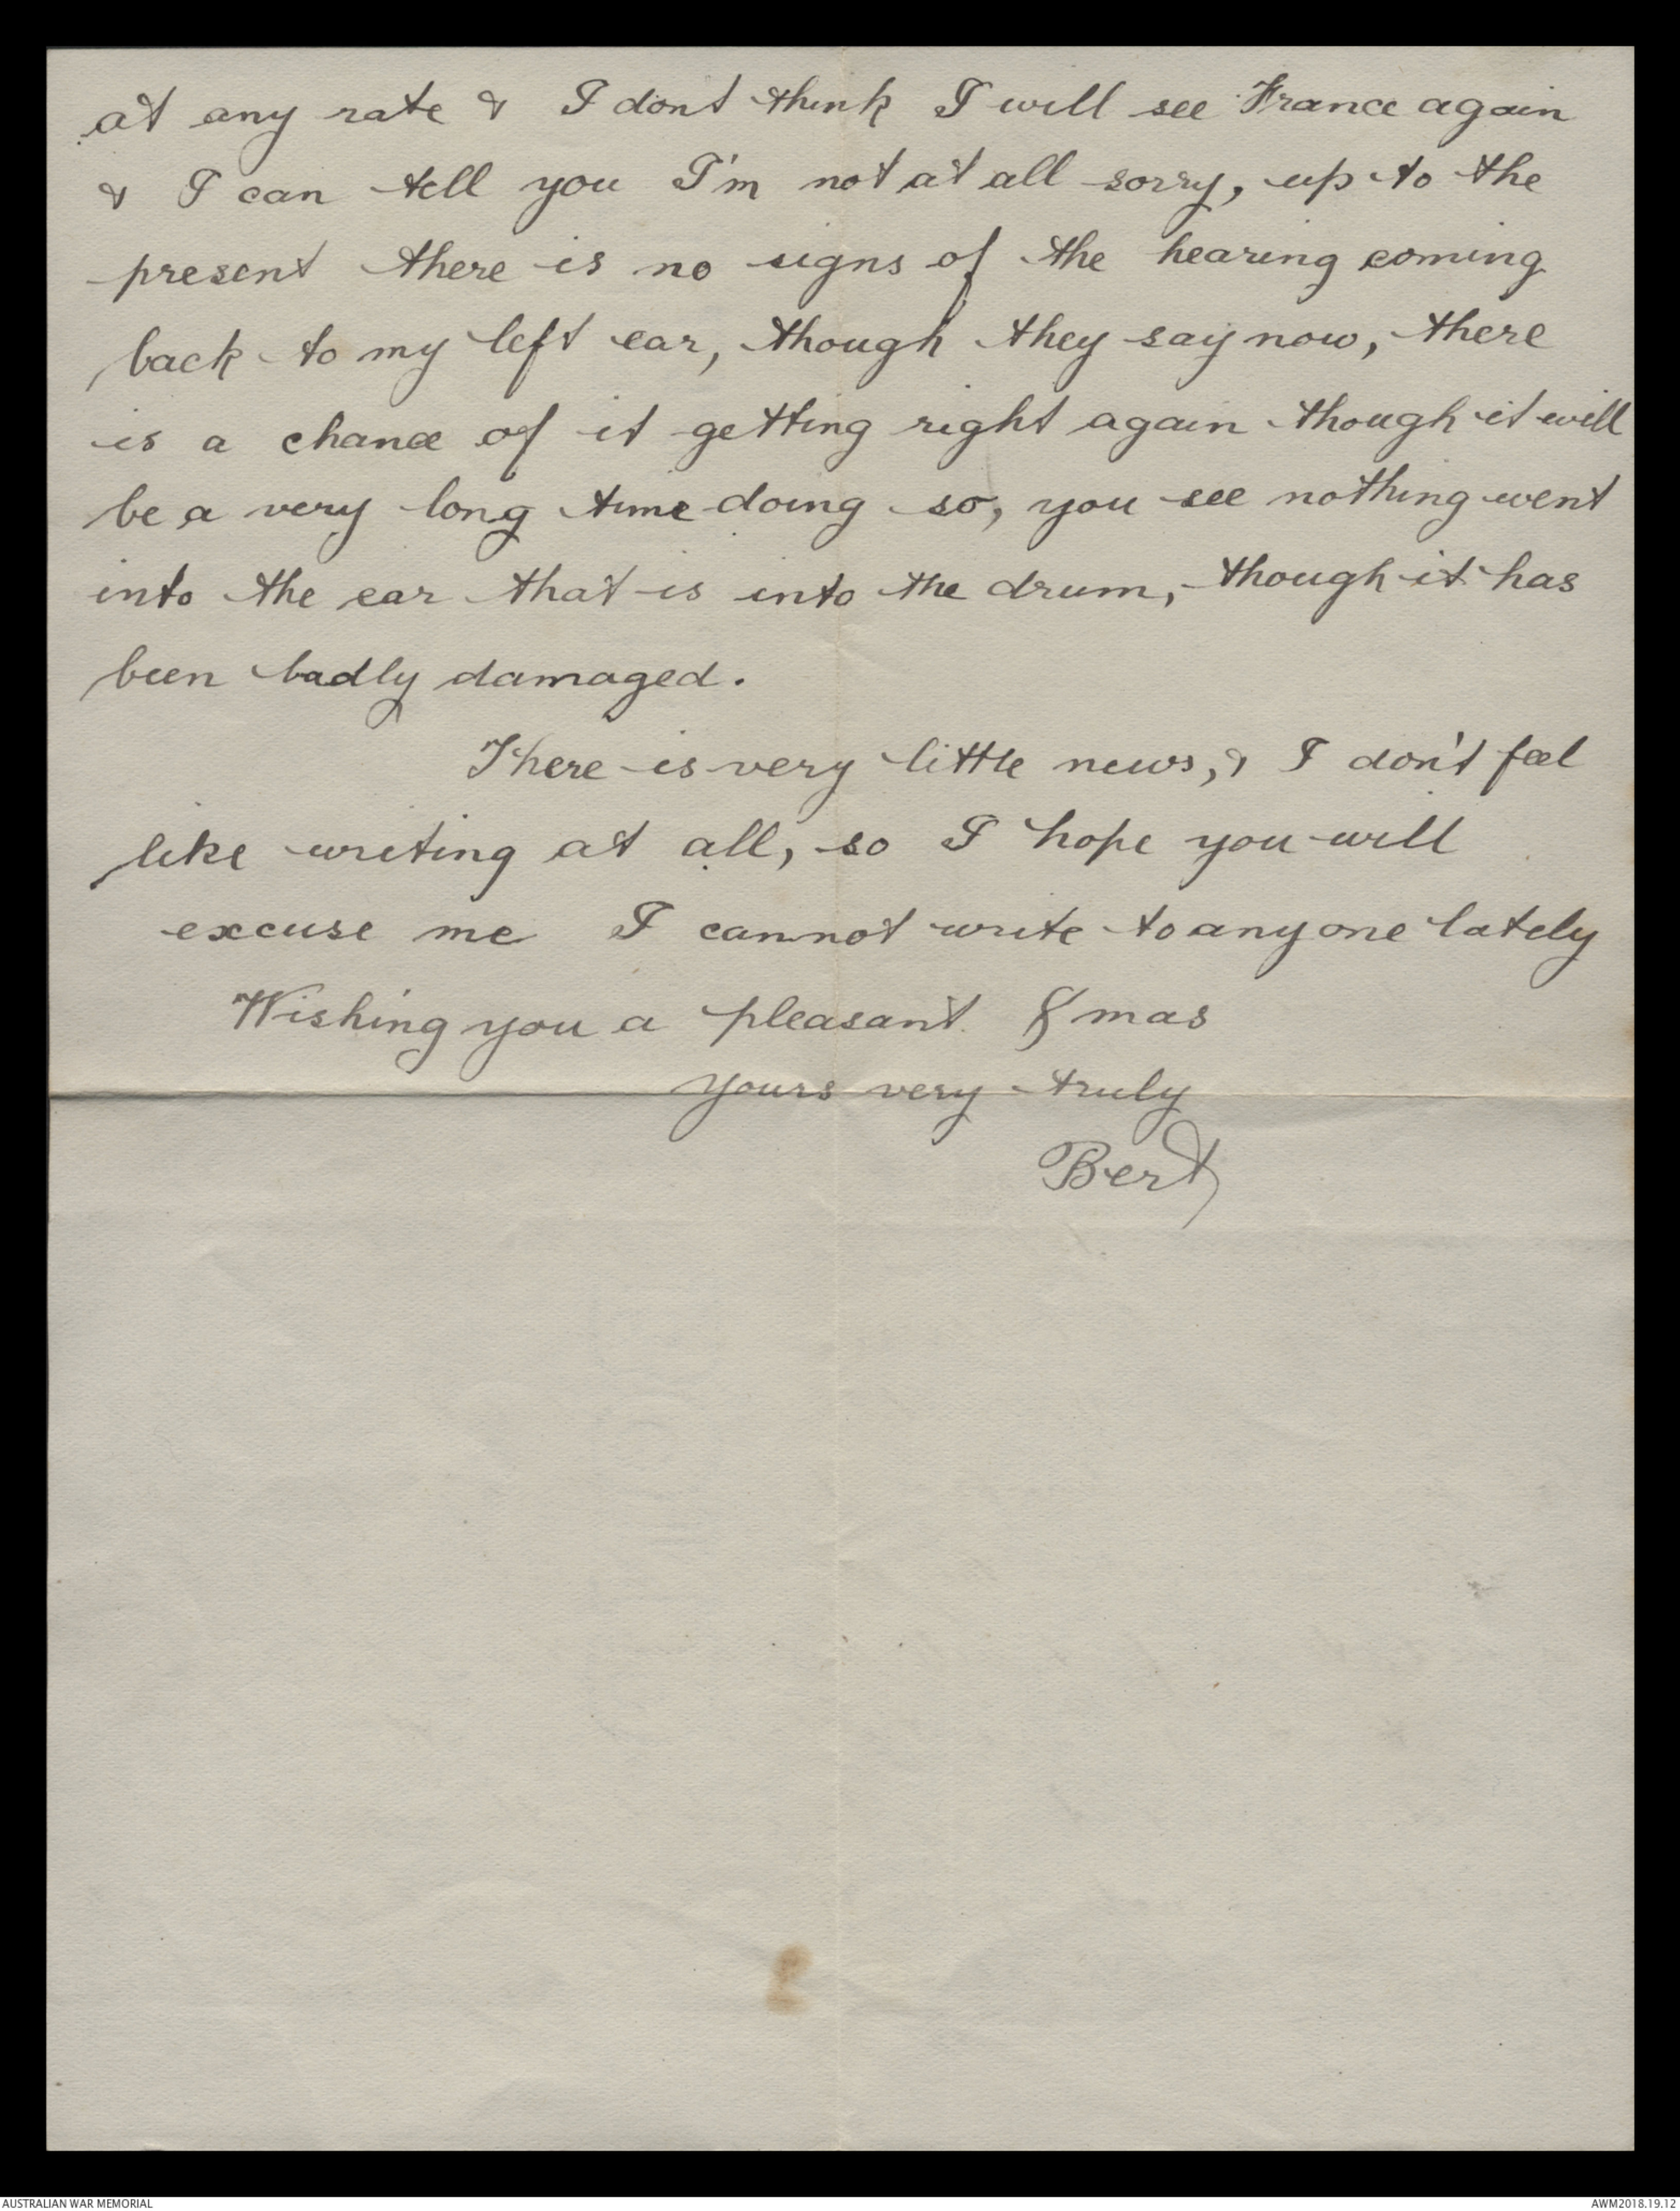 at any rate & I don't think I will see France again
& I can tell you I'm not at all sorry, up to the
present there is no signs of the hearing coming
back to my left ear, though they say now, there
is a chance of it getting right again though it will
be a very long time doing so, you see nothing went
into the ear that is into the drum, though it has
been badly damaged.
There is very little news, & I don't feel
like writing at all, so I hope you will
excuse me I cannot write to anyone lately
Wishing you a pleasant Xmas
Yours very truly
Bert
AUSTRALIAN WAR MEMORIAL
AWM2018.19.12